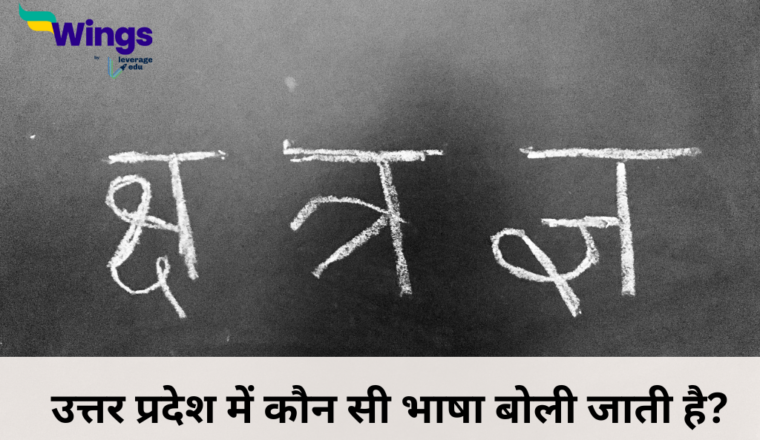 Wings
by leverage edu
क्ष त्र ज्ञ
उत्तर प्रदेश में कौन सी भाषा बोली जाती है?